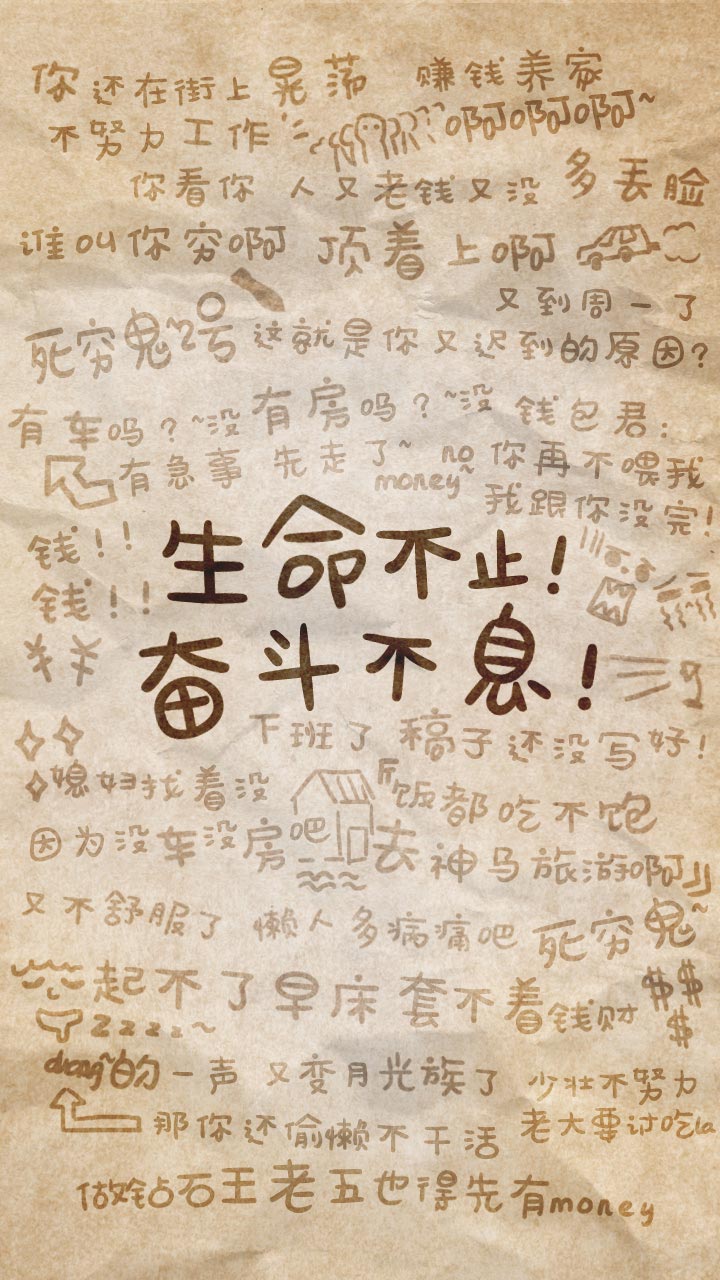 你还在街上晃荡 赚钱养家
不努力工作 啊啊啊~
你看你 人又老钱又没 多丢脸
谁叫你穷啊 顶着上啊
又到周一了
死穷鬼~2号 这就是你又迟到的原因?
有车吗?~没 有房吗?~没 钱包君:
有急事 先走了~ no money~ 你再不喂我
我跟你没完!
钱!!
生命不止!
钱!!
¥¥
奋斗不息!
下班了 稿子还没写好!
媳妇找着没 饭都吃不饱
因为没车没房吧 去神马旅游啊
又不舒服了 懒人多病痛吧 死穷鬼~
起不了早床 套不着钱财 $$$
zzzz~
duang~的一声 又变月光族了 少壮不努力
那你还偷懒不干活 老大要讨吃la
做难钻石王老五也得先有money